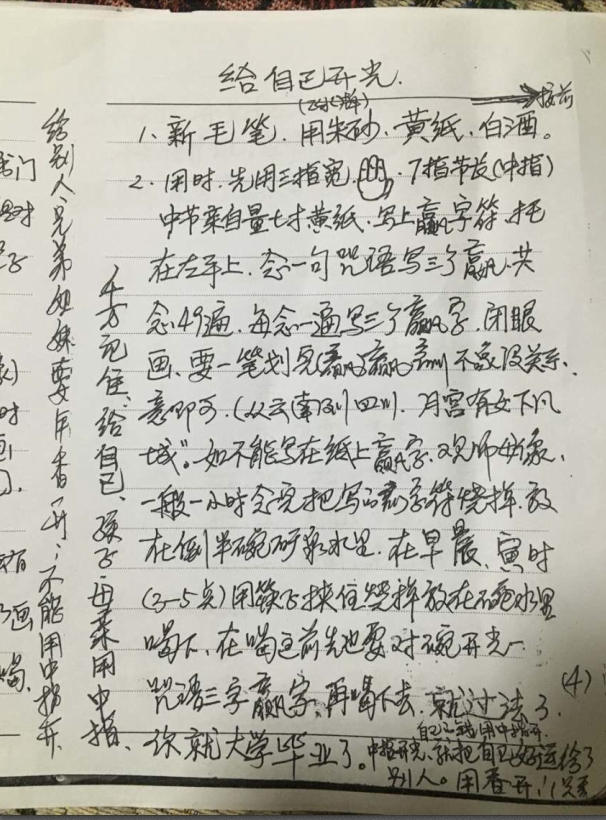 给自己开光.
接前
1、新毛笔.用朱砂.黄纸.白酒。
2.用时.先用三指宽. 7指节长(中指)
中节亲自量七寸黄纸.写上赢字符.托
在左手上.念一句咒语写三个赢.共
念49遍.每念一遍写三个赢字.闭眼
画.要一笔划完 赢 赢 不象没关系.
意即可.(从云南到四川.月宫有女下凡
城”.如不能写在纸上赢字.观师母象.
一般一小时念完把写的赢字符烧掉.放
在倒半碗矿泉水里.在早晨、寅时
(3-5点)用筷子挟住烧掉放在碗水里
喝下.在喝之前先也要对碗开光一
咒语三字赢字.再喝下去.就过法了.
你就大学毕业了。
自己能用中指开.
中指开光.就把自己好运给了
别人。用香开!
(4)
千万记住、给自己、孩子、母亲用中指、
给别人、兄弟姐妹要用香开、不能用中指开